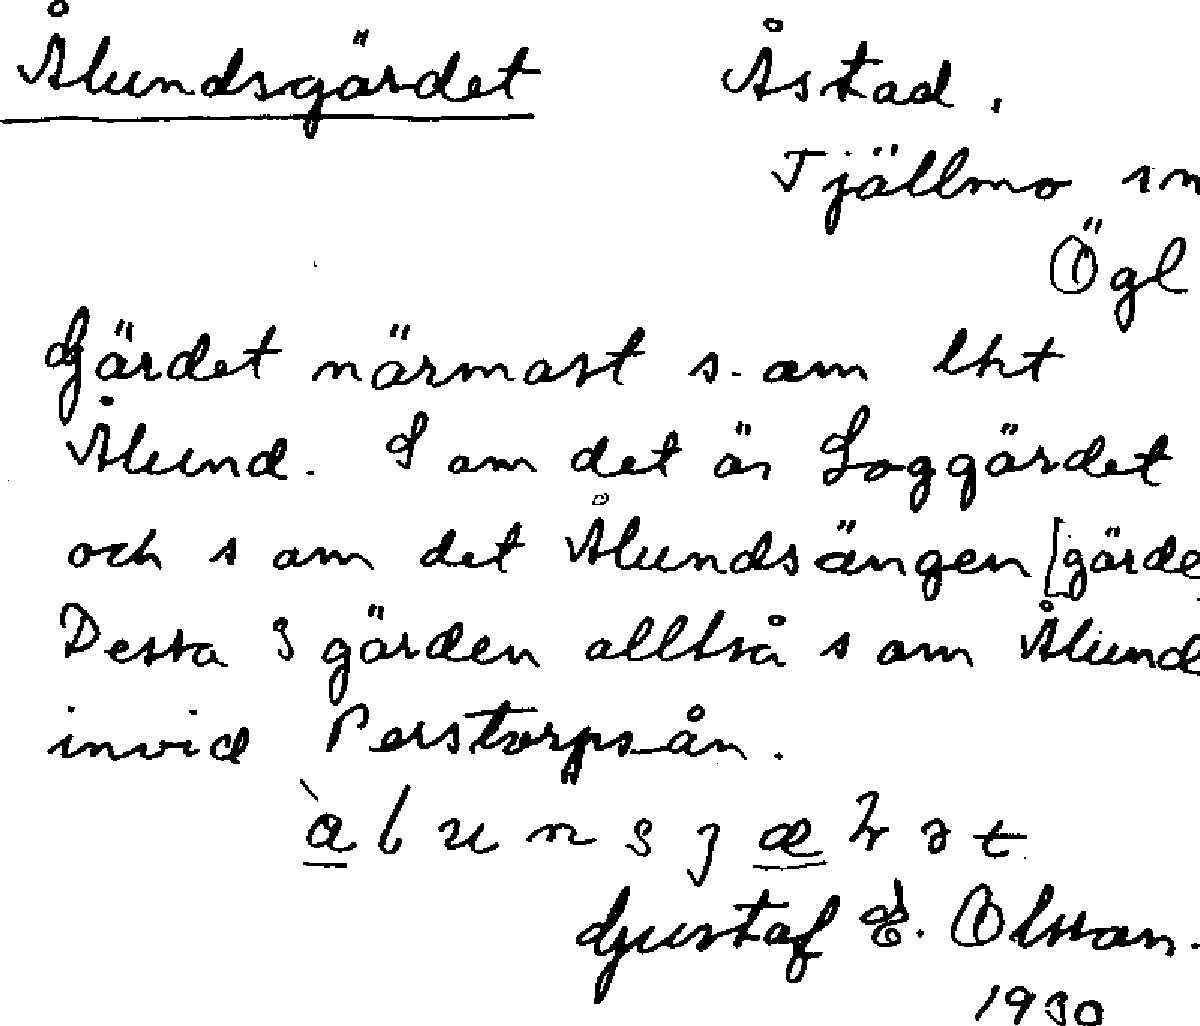 Ålundsgärdet Åstad.
Tjällmo sn
Ögl
Gärdet närmast s. om lht
Ålund. S om det är Loggärdet
och s om det Ålundsängen [gärde
Dessa 3 gärden alltså s om Ålund
invid Perstorpsån.
Gustaf E. Olsson.
1930